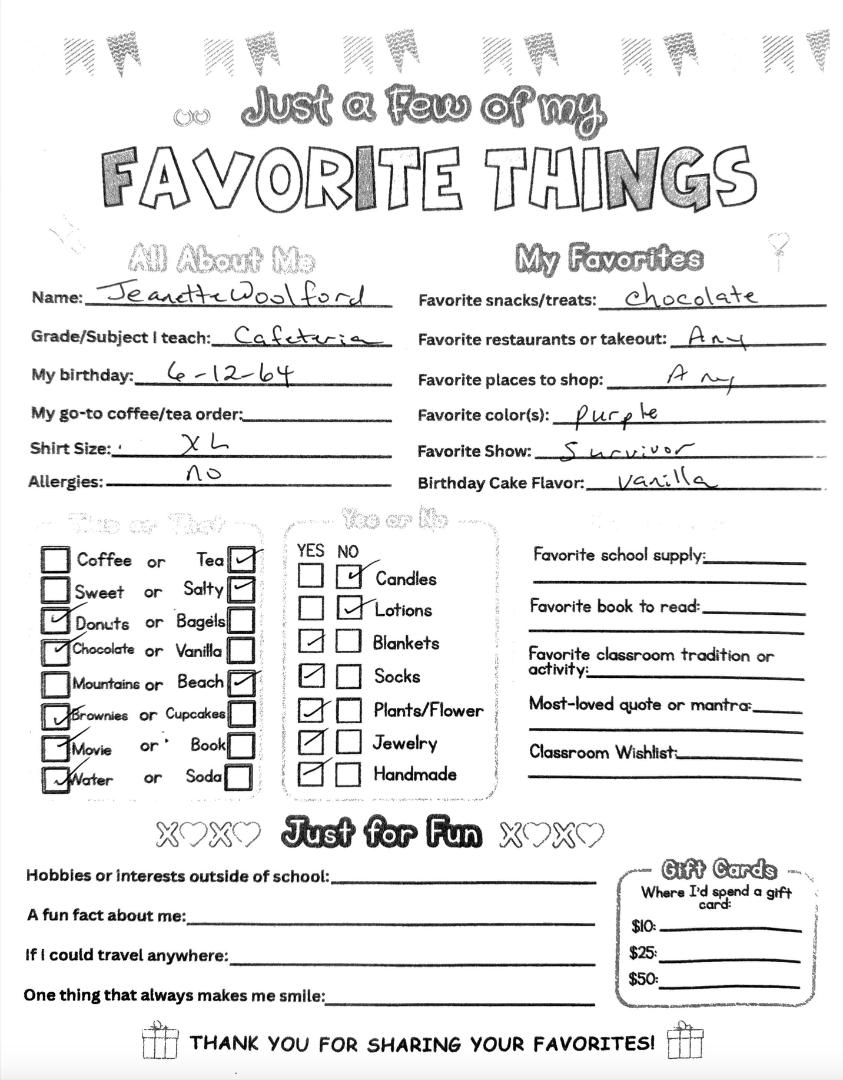 Just a Few of my
FAVORITE THINGS
All About Me
Name: Jeanette Woolford
Grade/Subject I teach: Cafeteria
My birthday: 6-12-64
My go-to coffee/tea order:
Shirt Size: XL
Allergies: no
My Favorites
Favorite snacks/treats: chocolate
Favorite restaurants or takeout: Any
Favorite places to shop: Any
Favorite color(s): purple
Favorite Show: Survivor
Birthday Cake Flavor: vanilla
This or That
Coffee or Tea
Sweet or Salty
Donuts or Bagels
Chocolate or Vanilla
Mountains or Beach
Brownies or Cupcakes
Movie or Book
Water or Soda
Yes or No
YES NO
Candles
Lotions
Blankets
Socks
Plants/Flower
Jewelry
Handmade
Favorite school supply:
Favorite book to read:
Favorite classroom tradition or
activity:
Most-loved quote or mantra:
Classroom Wishlist:
XOXO Just for Fun XOXO
Hobbies or interests outside of school:
A fun fact about me:
If I could travel anywhere:
One thing that always makes me smile:
Gift Cards
Where I'd spend a gift
card:
$10:
$25:
$50:
THANK YOU FOR SHARING YOUR FAVORITES!